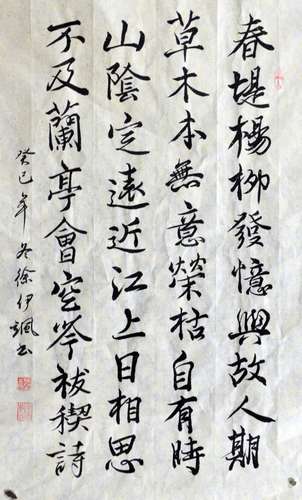 春堤楊柳發憶與故人期
草木本無意榮枯自有時
山陰定遠近江上日相思
不及蘭亭會空吟祓禊詩
癸巳年冬徐伊颯书